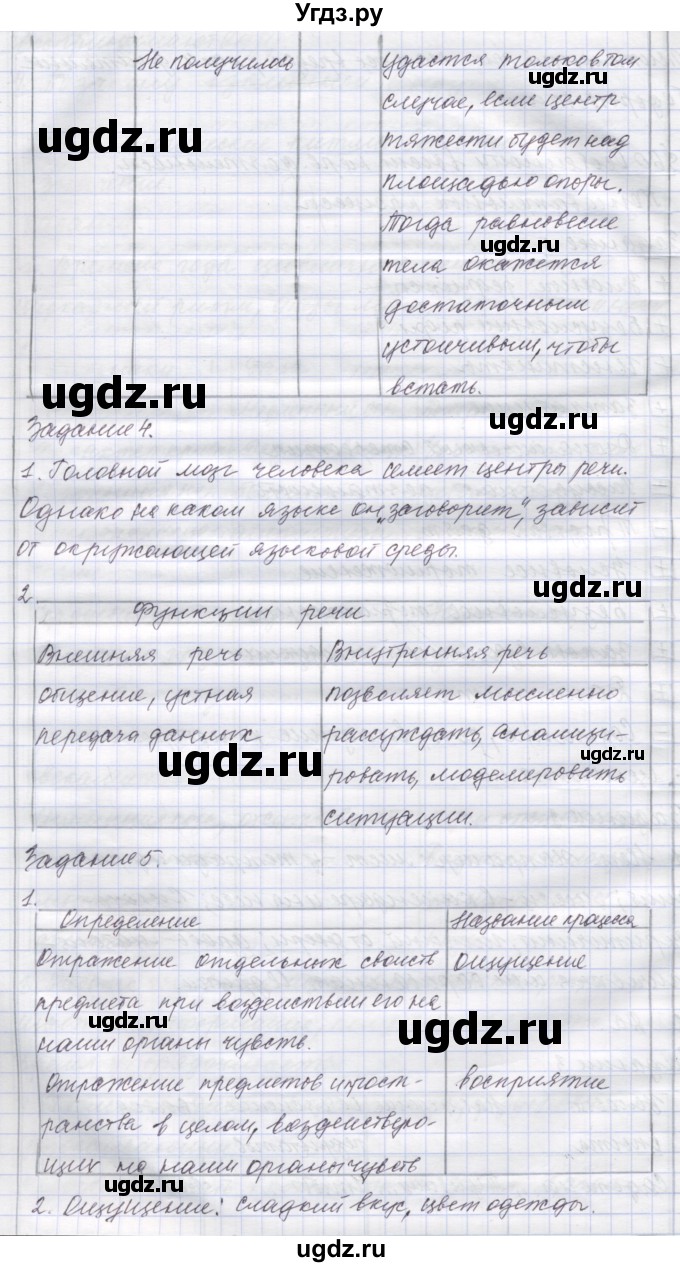 Угдз.ру
Не получилось
удастся только в том
ugdz.ru
случае, если центр
ugdz.ru
тяжести будет над
площадью опоры.
Тогда равновесие
ugdz.ru
тела окажется
достаточным
устойчивым, чтобы
ugdz.ru
встать.
Задание 4.
1. Головной мозг человека семеет центры речи.
Однако на каком языке он "заговорит", зависит
от окружающей языковой среды.
ugdz.ru
2.
Функции речи
Внешняя речь
Внутренняя речь
общение, устная
позволяет мысленно
передача данных
рассуждать, анализи-
ugdz.ru
ugdz.ru
ровать, моделировать
ситуации.
Задание 5.
1.
Определение
Название процесса
Отражение отдельных свойств
ощущение
предмета при воздействии его на
ugdz.ru
ugdz.ru
наши органы чувств.
Отражение предметов и прост-
восприятие
ранства в целом, воздействую-
щих на наши органы чувств
ugdz.ru
2. Ощущение: сладкий вкус, цвет одежды.
ugdz.ru